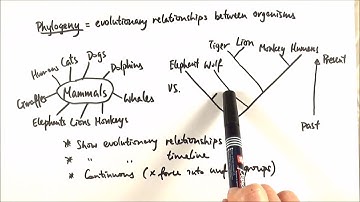 Phylogeny = evolutionary relationships between organisms
Tiger Lion Monkey Humans
Elephant Wolf
Humans Cats Dogs Dolphins
Giraffes Mammals Whales
Elephants Lions Monkeys
vs.
Present
Past
* Show evolutionary relationships
* " " timeline
* Continuous (x force into groups)